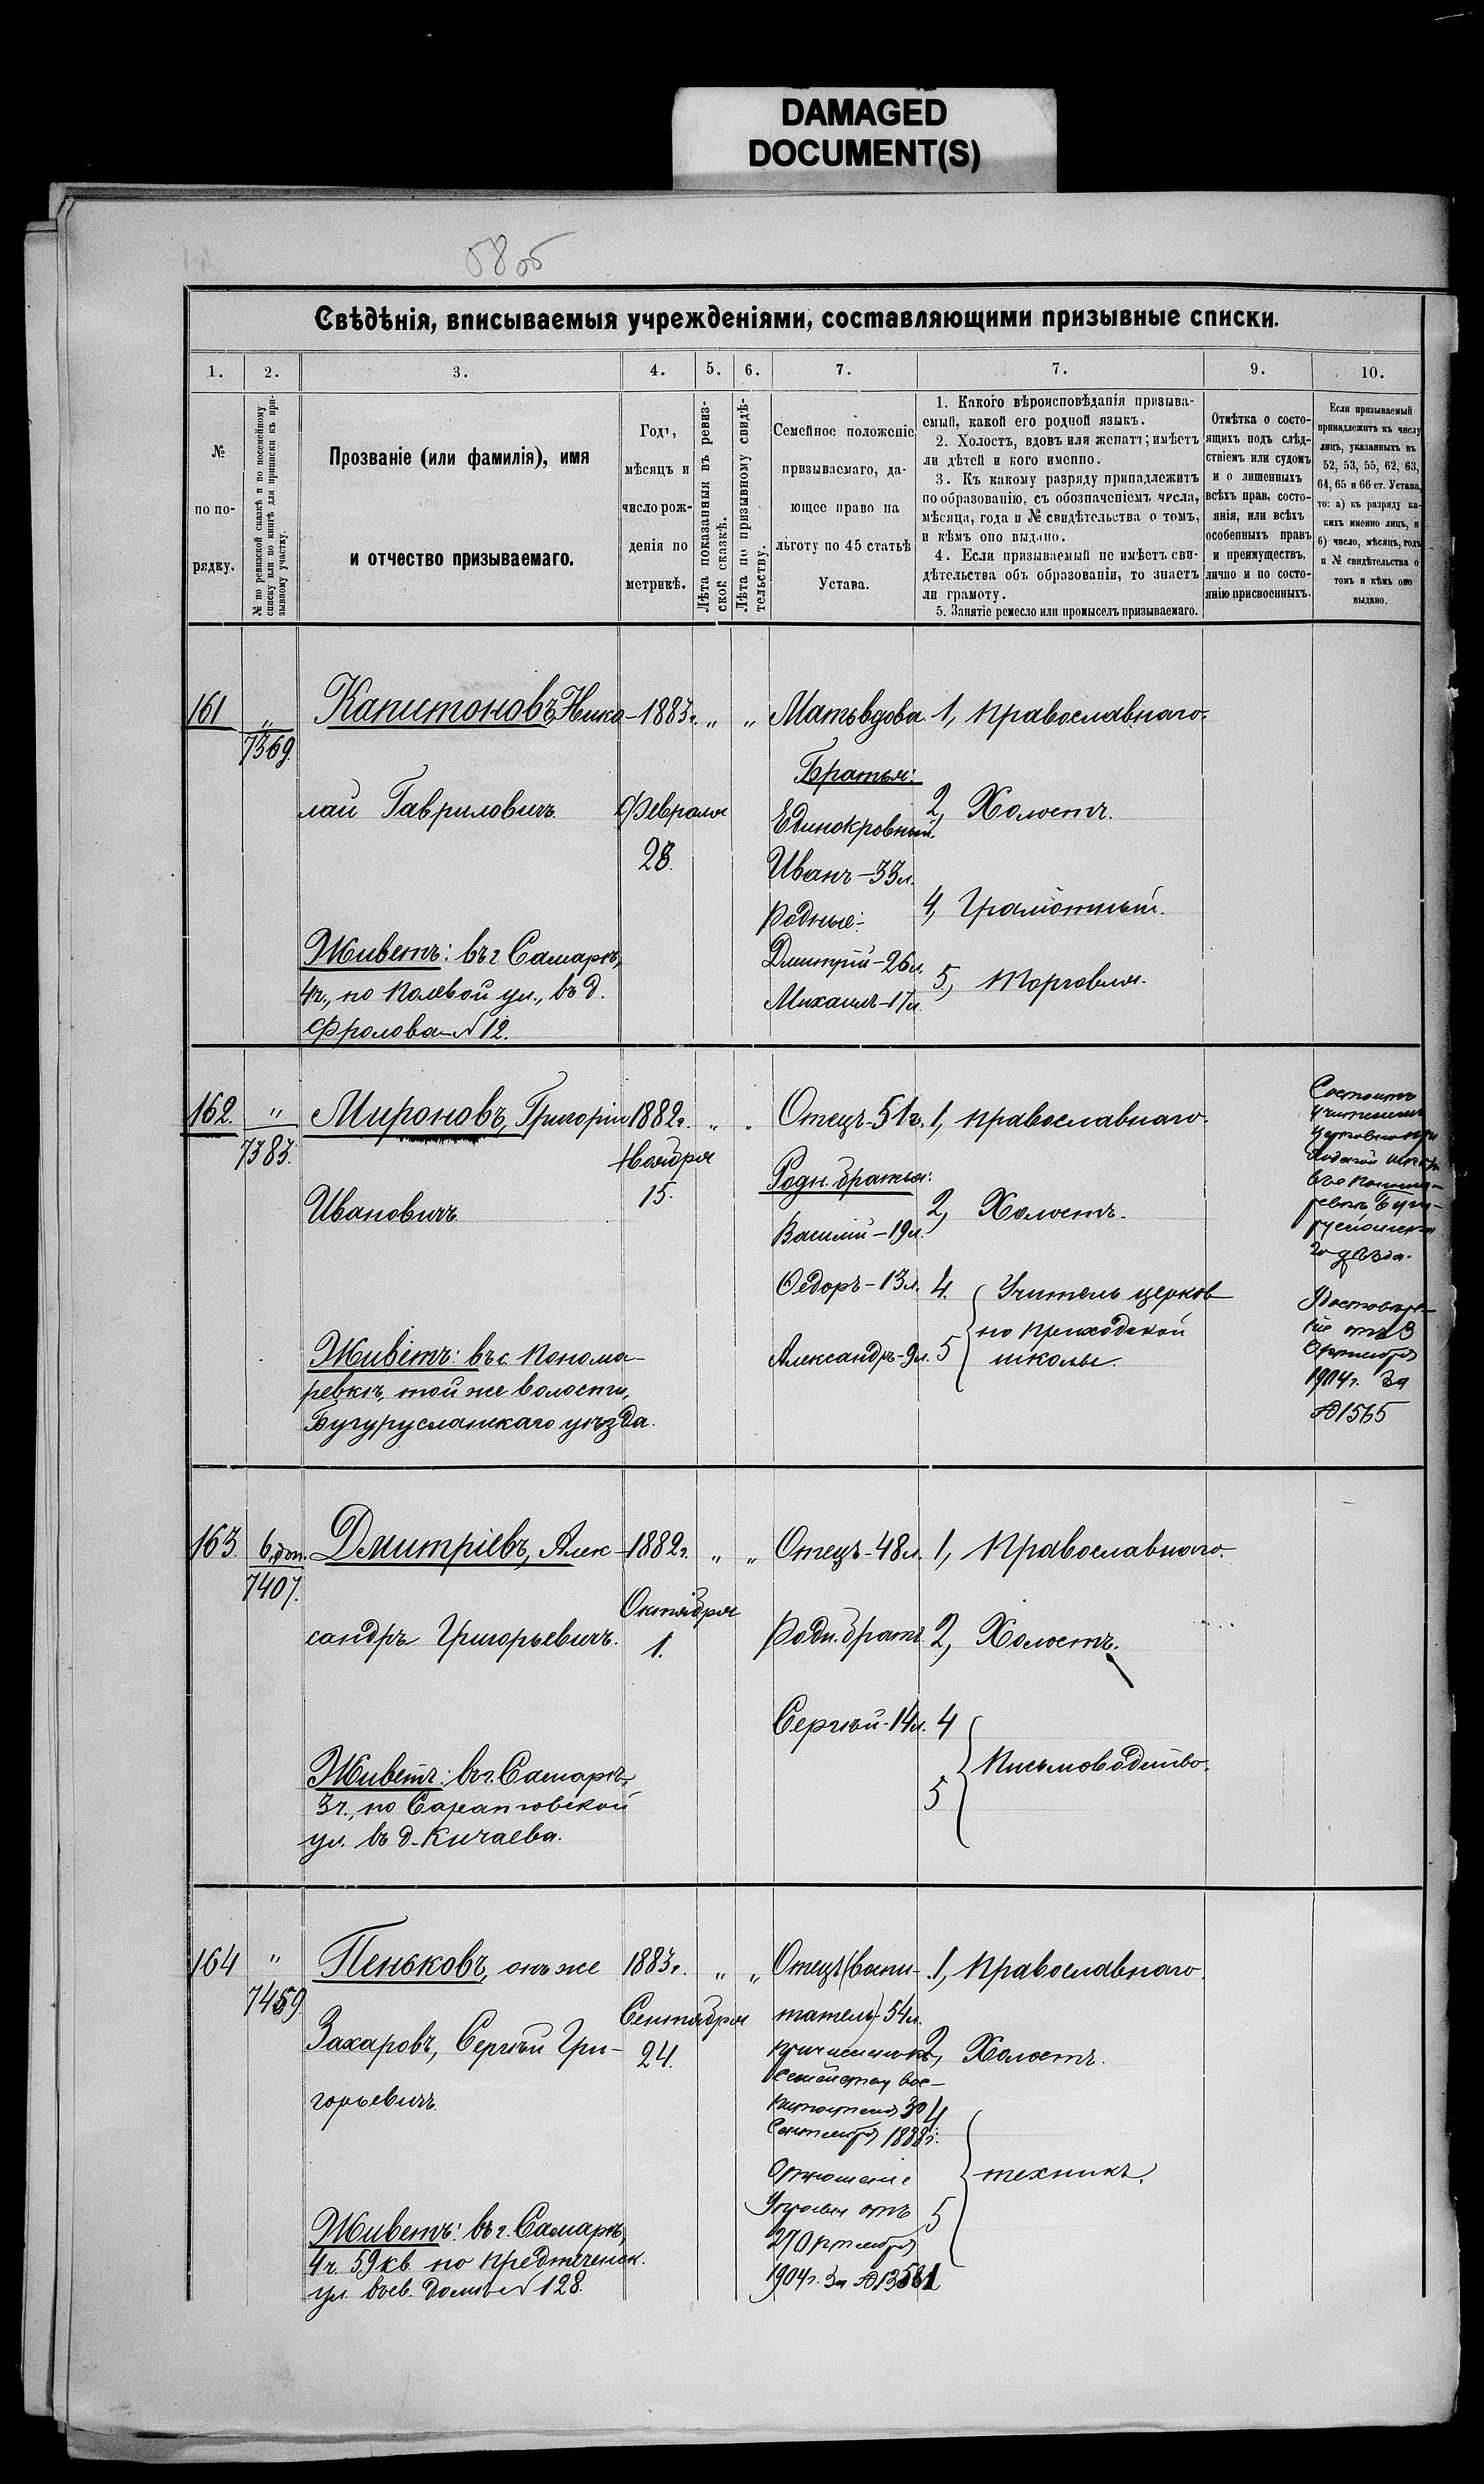 DAMAGED
DOCUMENT(S)
58 об
Свѣдѣнія, вписываемыя учрежденіями, составляющими призывные списки.
1. 2. 3. 4. 5. 6. 7. 7. 9. 10.
№
по по-
рядку.
№ по ревизской сказкѣ и по посемейному
списку или по книгѣ для приписки къ при-
зывному участку.
Прозваніе (или фамилія), имя
и отчество призываемаго.
Годъ,
мѣсяцъ и
число рож-
денія по
метрикѣ.
Лѣта показанныя въ ревиз-
ской сказкѣ.
Лѣта по призывному свидѣ-
тельству.
Семейное положеніе
призываемаго, да-
ющее право на
льготу по 45 статьѣ
Устава.
1. Какого вѣроисповѣданія призыва-
емый, какой его родной языкъ.
2. Холостъ, вдовъ или женатъ; имѣетъ
ли дѣтей и кого именно.
3. Къ какому разряду принадлежитъ
по образованію, съ обозначеніемъ числа,
мѣсяца, года и № свидѣтельства о томъ,
и кѣмъ оно выдано.
4. Если призываемый не имѣетъ сви-
дѣтельства объ образованіи, то знаетъ
ли грамоту.
5. Занятіе ремесло или промыселъ призываемаго.
Отмѣтка о состо-
ящихъ подъ слѣд-
ствіемъ или судомъ
и о лишенныхъ
всѣхъ прав. состо-
янія, или всѣхъ
особенныхъ правъ
и преимуществъ,
лично и по состо-
янію присвоенныхъ.
Если призываемый
принадлежитъ къ числу
лицъ, указанныхъ въ
52, 53, 55, 62, 63,
64, 65 и 66 ст. Устава,
то: а) къ разряду ка-
кихъ именно лицъ, и
б) число, мѣсяцъ, годъ
и № свидѣтельства о
томъ и кѣмъ оно
выдано.
161
"
7369.
Капитоновъ, Нико-
лай Гавриловичъ.
Живетъ: въ г. Самарѣ,
4ч., по Полевой ул., въ д.
Фролова № 12.
1883г.
Февраля
28.
" "
Мать вдова.
Братья:
Единокровный.
Иванъ - 33л.
Родные:
Дмитрій - 26л.
Михаилъ - 17л.
1, Православнаго.
2, Холостъ.
4, Грамотный.
5, Торговля.
162.
"
7383.
Мироновъ, Григорій
Ивановичъ.
Живетъ: въ с. Понома-
ревкѣ, той же волости,
Бугурусланскаго уѣзда.
1882г.
Ноября
15.
" "
Отецъ - 51г.
Родн. братья:
Василій - 19л.
Ѳедоръ - 13л.
Александръ - 9л.
1, Православнаго.
2, Холостъ.
4. Учитель церков
5 но приходской
школы.
Состоитъ
учителемъ
церковно при
ходской школы
въ с Понома-
ревкѣ Бугу-
русланска
го уѣзда.
отъ 3
Октября
1904г. за
№ 1565
163.
6. доп.
7407.
Дмитріевъ, Алек-
сандръ Григорьевичъ.
Живетъ: въ г. Самарѣ,
3ч., по Саратовской
ул. въ д. Кичаева.
1882г.
Октября
1.
" "
Отецъ - 48л.
Родн. братъ
Сергѣй - 14л.
1, Православнаго.
2, Холостъ.
4
5
Письмоводство.
164
"
7459.
Пеньковъ, онъ же
Захаровъ, Сергѣй Гри-
горьевичъ.
Живетъ: въ г. Самарѣ,
4ч. 59 кв. по Предтеченск.
ул. въ св. домѣ № 128.
1883г.
Сентября
24.
" "
Отецъ (воспи-
татель) - 54л.
семейству вос-
30
Сентября 1888г.
Отношеніе
Управы отъ
27 Октября
1904г. за № 13581
1, Православнаго.
2, Холостъ.
4
5
техникъ.